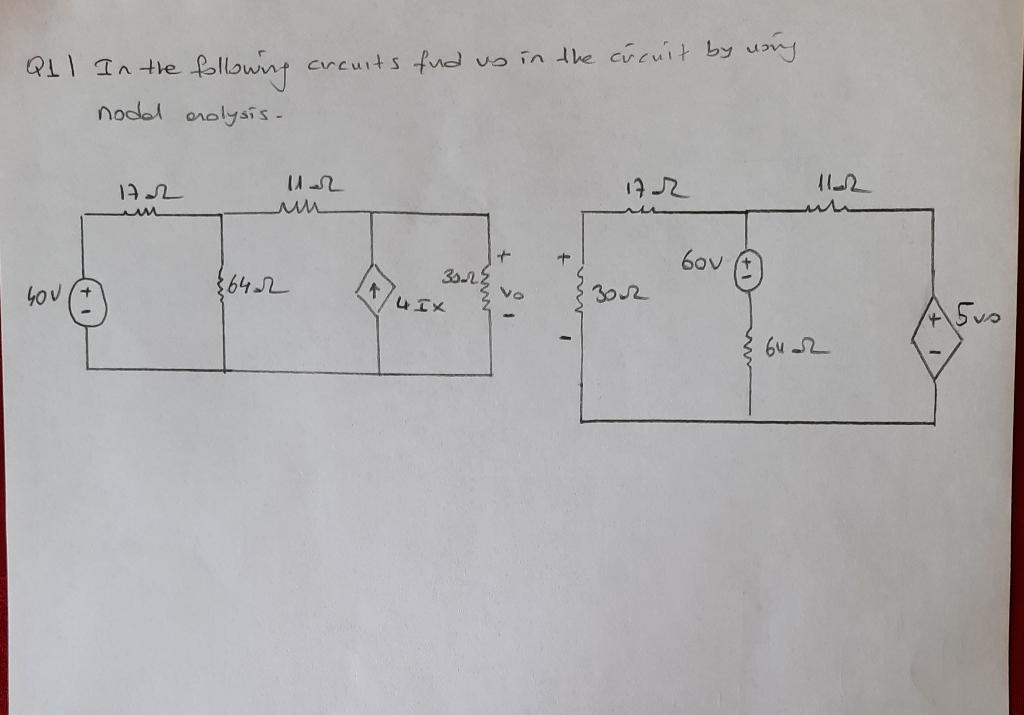 Q1) In the following circuits find vo in the circuit by using
nodal analysis.
17Ω 11Ω
40V + - 64Ω 4Ix 30Ω + vo -
17Ω 11Ω
+ - 30Ω 60V + - 64Ω + - 5vo